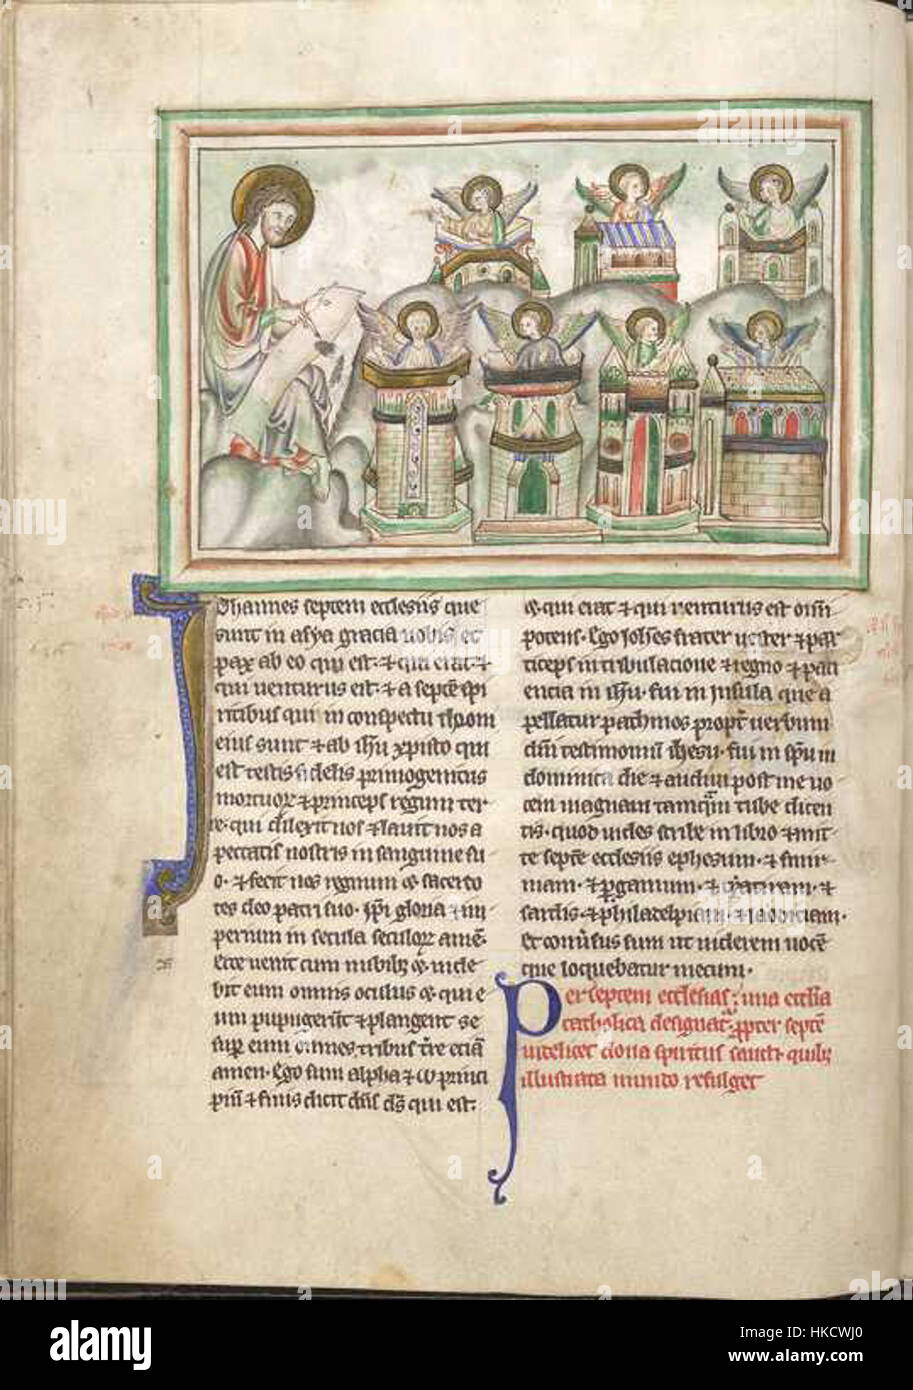 Iohannes septem ecclesiis que
sunt in asya gracia uobis et
pax ab eo qui est ⁊ qui erat ⁊
qui uenturus est ⁊ a septē spi
ritibus qui in conspectu throni
eius sunt ⁊ ab ihu xpisto qui
est testis fidelis primogenitus
mortuoꝝ ⁊ princeps regum ter
re qui dilexit nos ⁊ lauit nos a
peccatis nostris in sanguine su
o ⁊ fecit nos regnum ⁊ sacerdo
tes deo patri suo ipi gloria ⁊ im
perium in secula seculoꝝ amē
Ecce uenit cum nubibꝫ ⁊ uide
bit eum omnis oculus ⁊ qui e
um pupugerūt ⁊ plangent se
suꝑ eum omnes tribus tr̄e etiā
amen Ego sum alpha ⁊ ω princi
piū ⁊ finis dicit dn̄s ds̄ qui est
⁊ qui erat ⁊ qui uenturus est omīi
potens Ego ioh̄es frater uester ⁊ par
ticeps in tribulacione ⁊ regno ⁊ pati
encia in ihu fui in insula que a
pellatur pathmos propt̄ uerbum
dei testimonium ihesu fui in spū in
dominica die ⁊ audiui post me uo
cem magnam tamquam tube dicen
tis quod uides scribe in libro ⁊ mit
te septē ecclesiis ephesum ⁊ smir
nam ⁊ ꝑgamum ⁊ thyatiram ⁊
sardis ⁊ philadelphiam ⁊ laodiciam
Et conūsus sum ut uiderem uocē
que loquebatur mecum
Per septem ecclesias una ecclīa
catholica designat̄ ꝓpter septē
uidelicet dona spiritus sancti quibꝫ
illustrata mundo refulget
alamy
Image ID: HKCWJ0
www.alamy.com